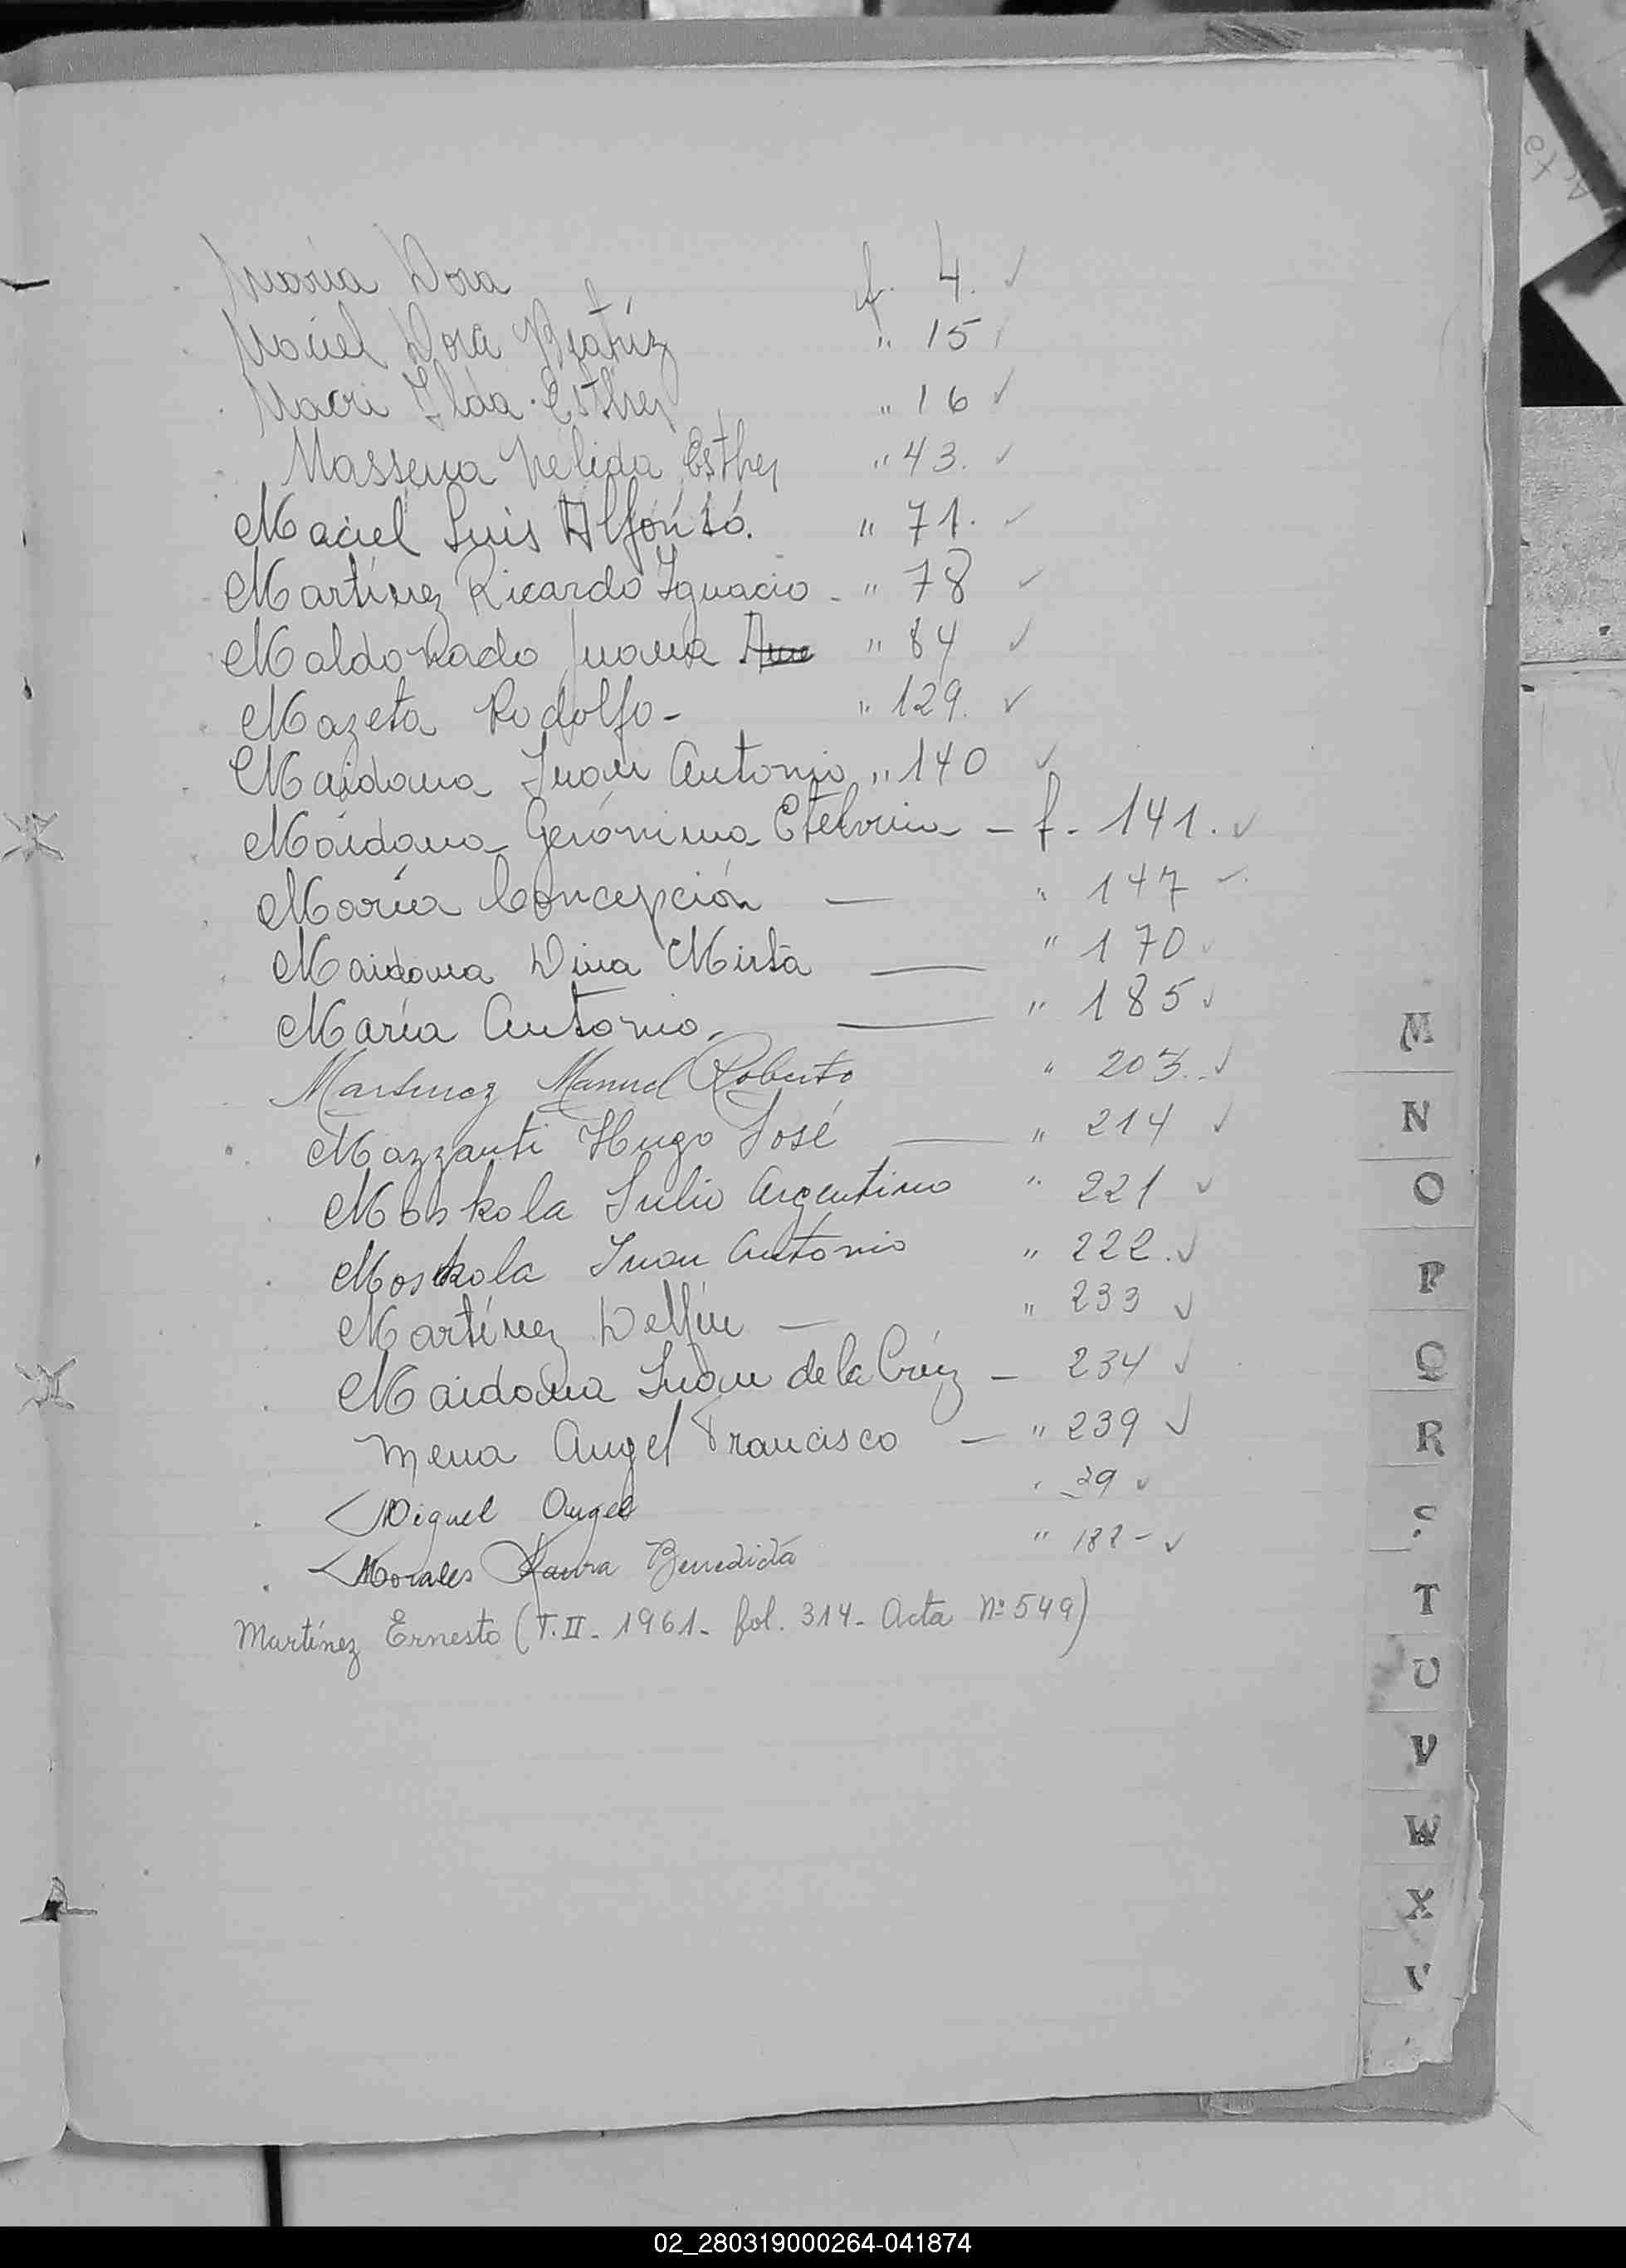 María Dora f. 4. ✓
Maciel Dora Beatríz " 15 ✓
Macri Ilda Esther " 16 ✓
Massena Nelida Esther " 43. ✓
Maciel Luis Alfonso. " 71. ✓
Martínez Ricardo Ignacio - " 78 ✓
Maldonado Juana " 84 ✓
Mazeta Rodolfo - " 129. ✓
Maidana Juan Antonio " 140 ✓
Maidana Gerónima Etelvina - f - 141. ✓
María Concepción — " 147 ✓
Maidana Dina Mirta — " 170 ✓
María Antonio. — " 185 ✓
Martinez Manuel Roberto " 203. ✓
Mazzanti Hugo José — " 214 ✓
Moskola Julio Argentino " 221 ✓
Moskola Juan Antonio " 222. ✓
Martínez Delfín — " 233 ✓
Maidana Juan de la Crúz - 234 ✓
Mena Angel Francisco — " 239 ✓
Miguel Angel " 39 ✓
Morales Benedicta " 182 - ✓
Martínez Ernesto (T. II - 1961 - fol. 314 - Acta Nº 549)
M
N
O
P
Q
R
S
T
U
V
W
X
02_280319000264-041874